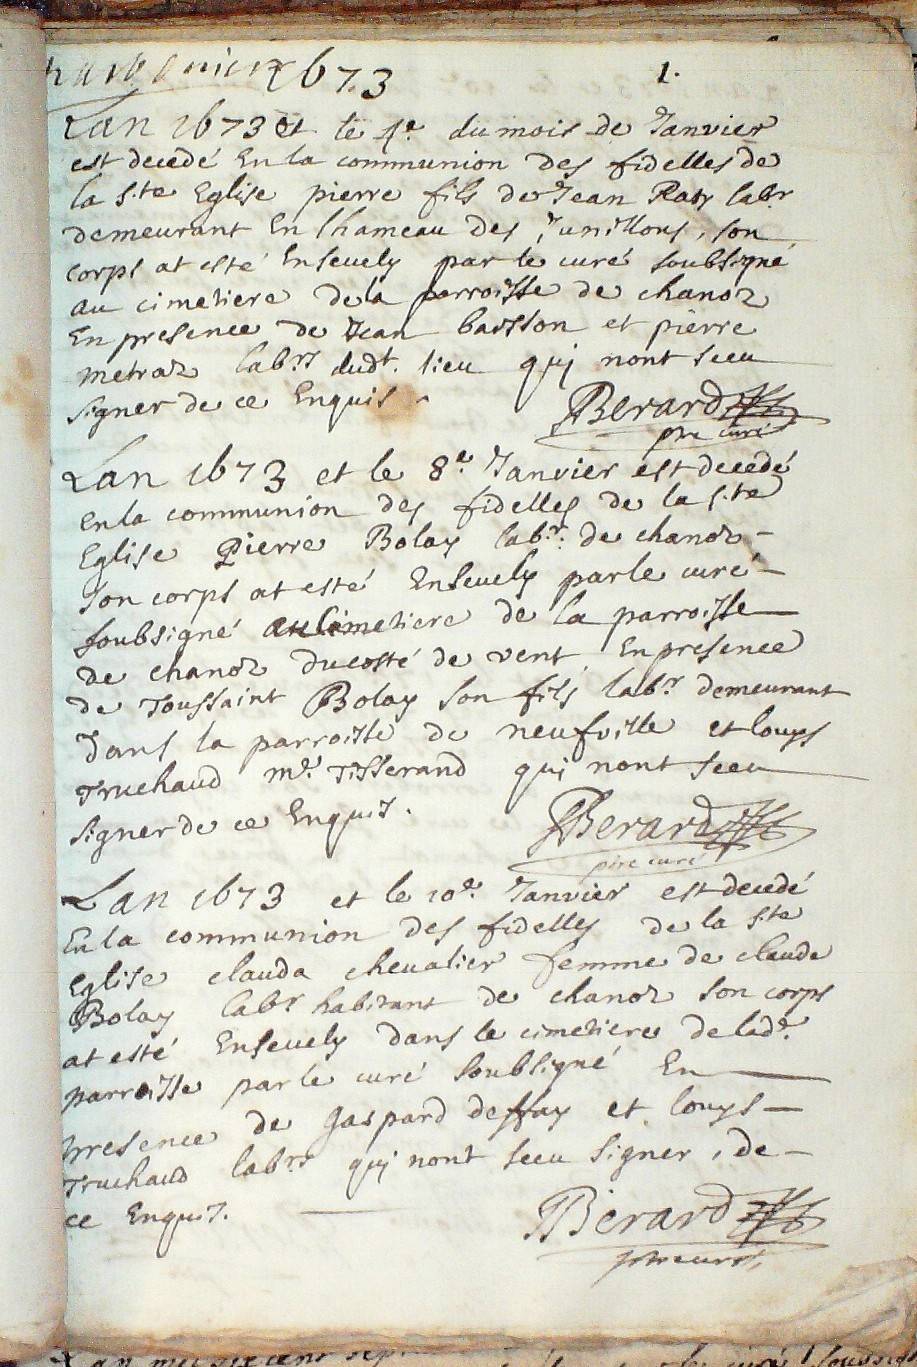 1673 1.
Lan 1673 et le 4e du mois de Janvier
est decedé En la communion des fidelles de
la s.te Eglise pierre fils de Jean Raty lab.r
demeurant En lhameau des Junillons, son
corps at esté Ensevely par le curé soubsigné
au cimetiere de la parroisse de chanoz
En presence de Jean basson et pierre
metraz lab.rs dud.t lieu quj nont sceu
signer de ce Enquis.
Berard
pbre curé
Lan 1673 et le 8.e Janvier est decedé
En la communion des fidelles de la s.te
Eglise Pierre Bolay lab.r de chanoz -
son corps at esté Ensevely par le curé -
soubsigné au Cimetiere de la parroisse
de chanoz du costé de vent En presence
de Toussaint Bolay son fils lab.r demeurant
dans la parroisse de neufville et louys
Truchaud m.e Tisserand quj nont sceu
signer de ce Enquis.
Berard
pbre curé
Lan 1673 et le 10.e Janvier est decedé
En la communion des fidelles de la s.te
Eglise clauda chevalier femme de claude
Bolay lab.r habitant de chanoz son corps
at esté Ensevely dans le cimetiere de lad.e
parroisse par le curé soubsigné En
presence de gaspard deffay et louys -
Truchaud lab.rs quj nont sceu signer, de -
ce Enquis.
Berard
pbre curé